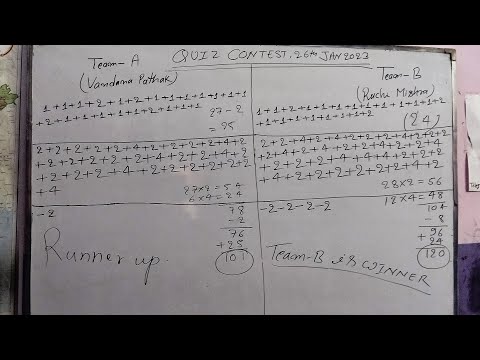 QUIZ CONTEST. 26th JAN 2023
Team-A
(Vandana Pathak)
1+1+1+2+1+2+1+1+1+1+1+1+1
+2+1+1+1+1+1+2+1+1+1
27-2
=25
2+2+2+2+2+4+2+2+2+2+4+2
+2+2+2+2+2+4+2+2+4+2
+2+2+2+4+2+2+2+2+2+2
+4
27×2=54
6×4=24
-2
78
-2
76
+25
101
Runner up.
Team-B
(Ruchi Mishra)
1+1+2+1+1+1+1+1+1+1+1+1+2
+1+1+1+1+1+1+2
(24)
2+2+4+2+4+2+2+2+4+2+2+2
+2+4+2+2+4+2+4+2+2+4
+2+2+2+4+4+4+2+2+2
+4+2+2+2+2+2+4+2
28×2=56
12×4=48
-2-2-2-2
104
-8
+96
24
120
Team-B is WINNER